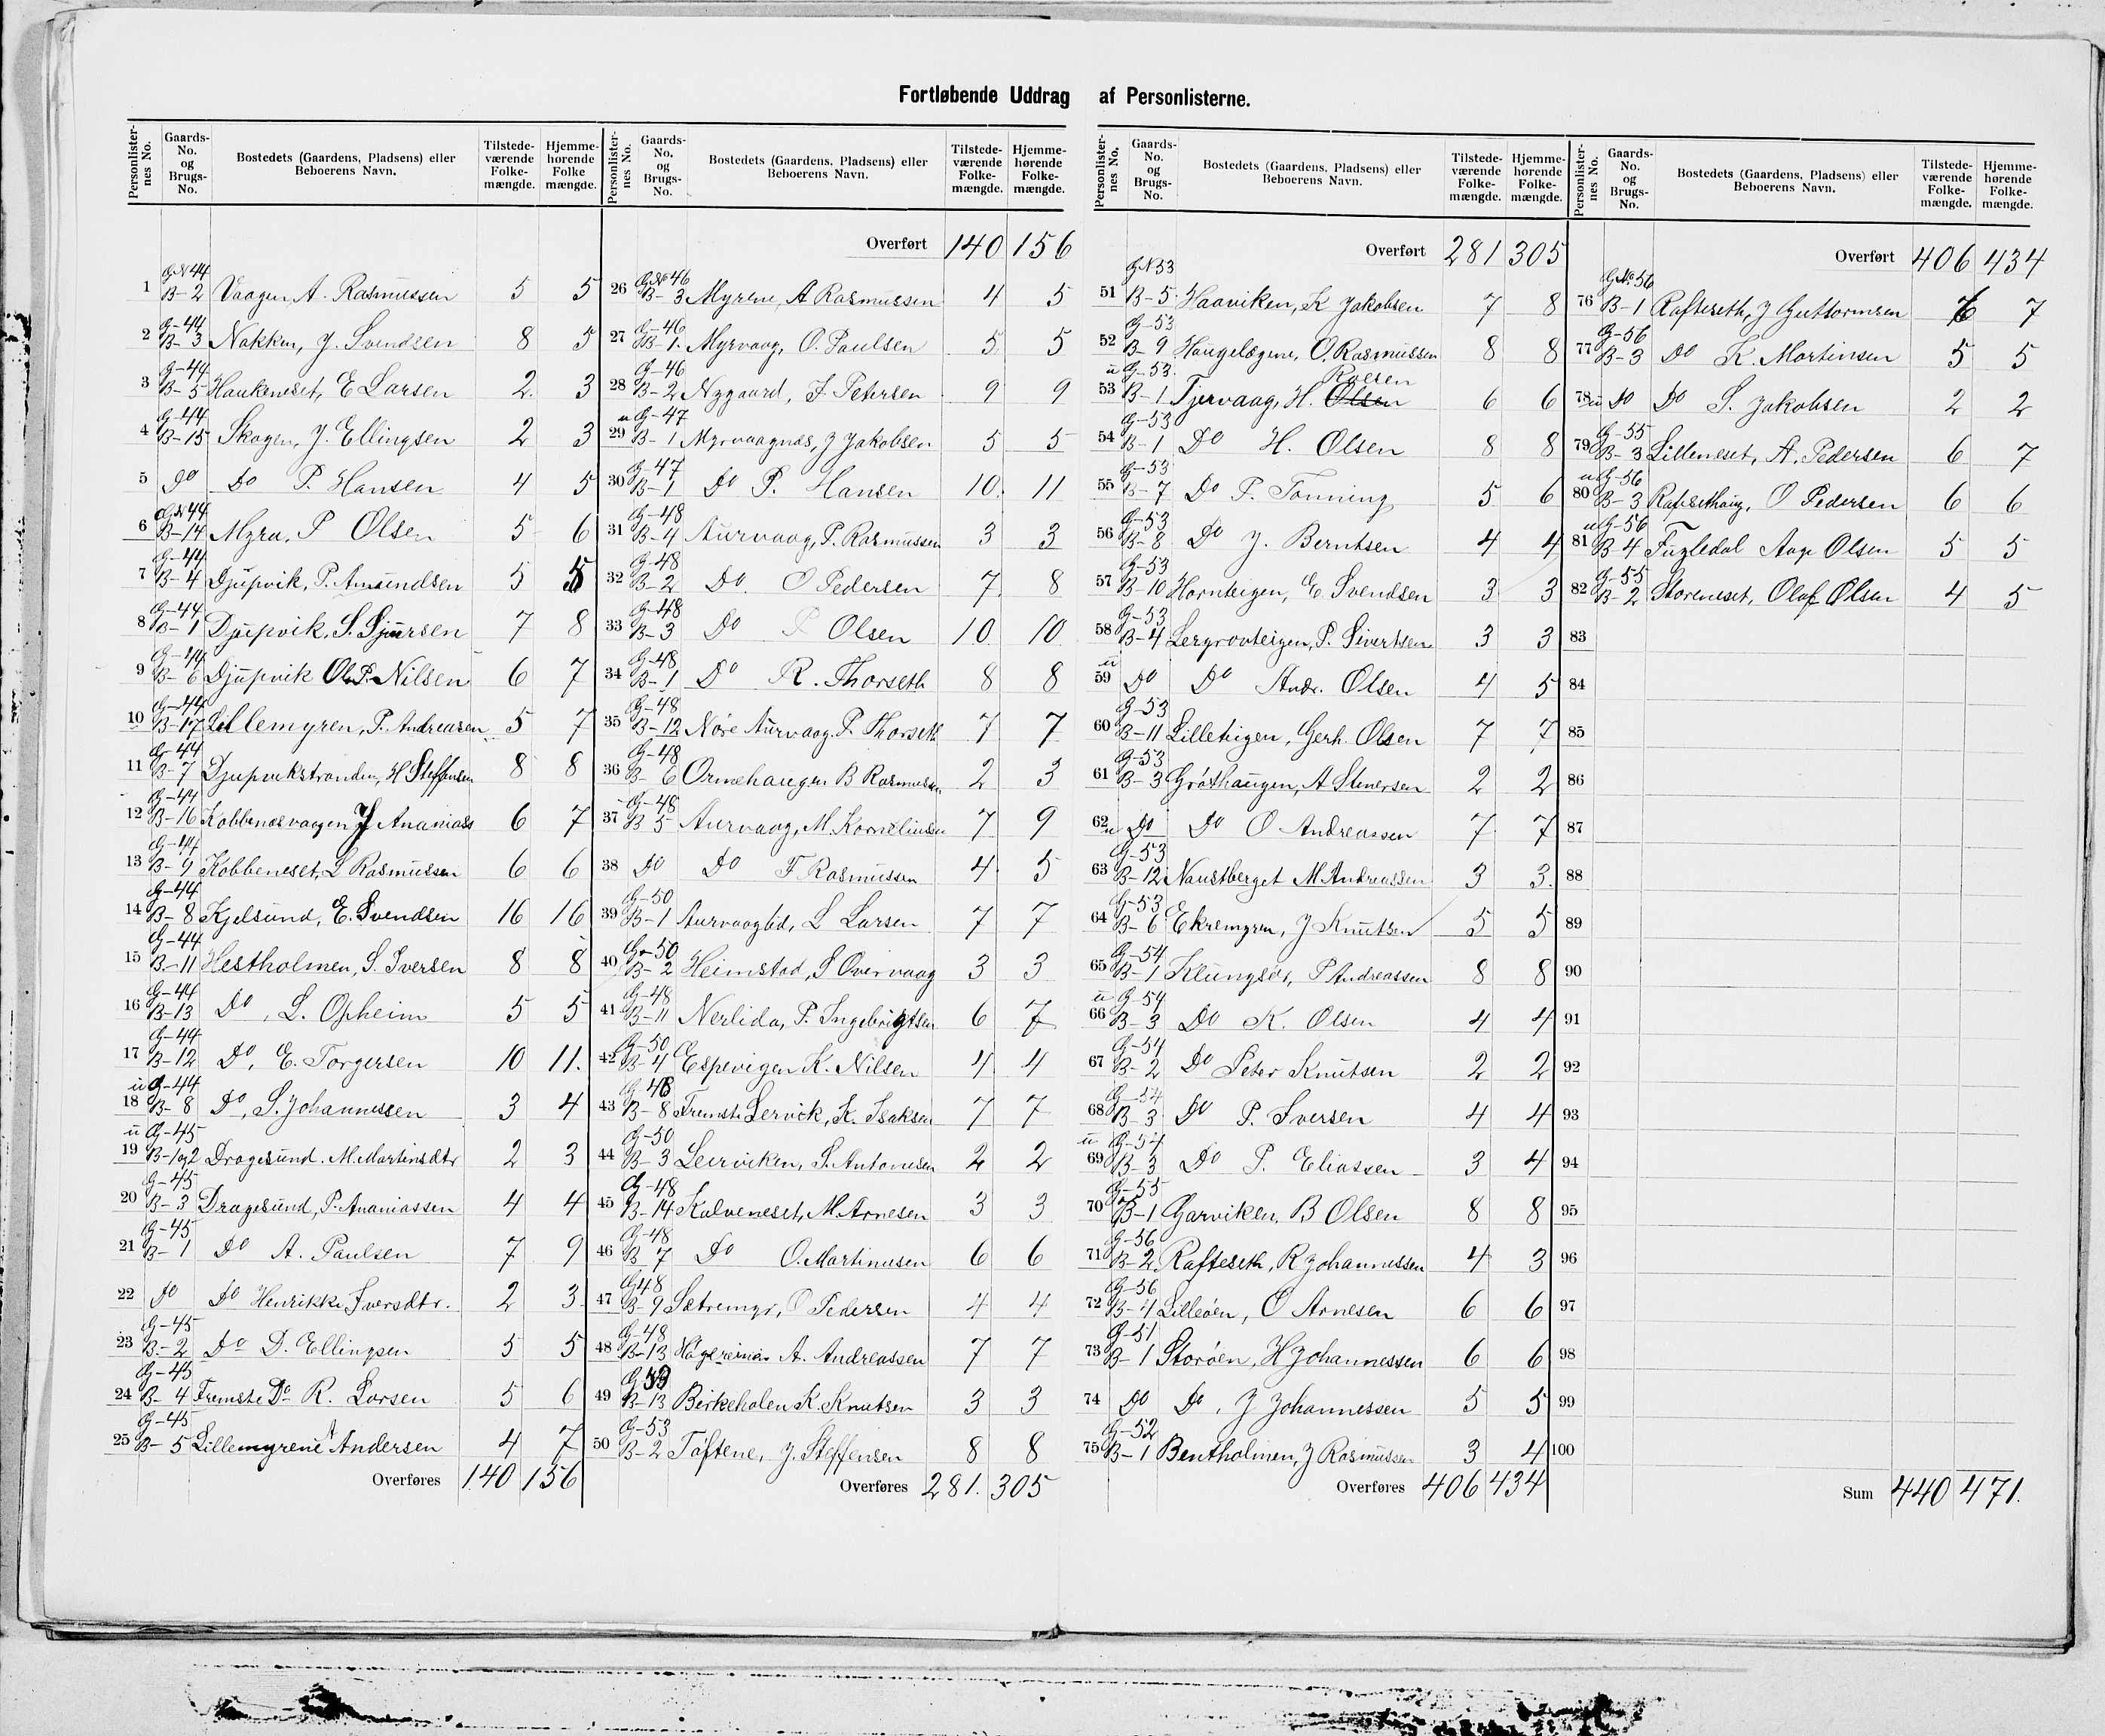 Fortløbende Uddrag af Personlisterne.
Personlister-nes No. Gaards-No. og Brugs-No. Bostedets (Gaardens, Pladsens) eller Beboerens Navn. Tilstede-værende Folke-mængde. Hjemme-hørende Folke mængde.
G№44
1 B-2 Vaagen, A. Rasmussen 5 5
G-44
2 B-3 Nakken, J. Svendsen 8 5
G-44
3 B-5 Haukeneset, E Larsen 2 3
G-44
4 B-15 Skogen, J. Ellingsen 2 3
5 Do Do P. Hansen 4 5
G№44
6 B-14 Myra, P Olsen 5 6
G-44
7 B-4 Djupvik, P. Amundsen 5 5
G-44
8 B-1 Djupvik, S. Sjursen 7 8
G-44
9 B-6 Djupvik Ole P. Nilsen 6 7
G-44
10 B-17 Lillemyren, P. Andreasen 5 7
G-44
11 B-7 Djupvikstranden, H Steffensen 8 8
G-44
12 B-16 Kobbenesvaagen J Ananiass 6 7
G-44
13 B-9 Kobbeneset, L Rasmussen 6 6
G-44
14 B-8 Kjelsund, E. Svendsen 16 16
G-44
15 B-11 Hestholmen, S. Iversen 8 8
G-44
16 B-13 Do, L. Opheim 5 5
G-44
17 B-12 Do, E. Torgersen 10 11.
u G-44
18 B-8 Do, S. Johannessen 3 4
u G-45
19 B-1og2 Dragesund. M. Martinsdtr 2 3
G-45
20 B-3 Dragesund, P. Ananiassen 4 4
G-45
21 B-1 Do A. Paulsen 7 9
22 Do Do Henrikke Iversdtr. 2 3
G-45
23 B-2 Do D. Ellingsen 5 5
G-45
24 B-4 Fremste Do R. Larsen 5 6
G-45
25 B-5 Lillemyrene A Andersen 4 7
Overføres 140 156
Personlister-nes No. Gaards-No. og Brugs-No. Bostedets (Gaardens, Pladsens) eller Beboerens Navn. Tilstede-værende Folke-mængde. Hjemme-hørende Folke-mængde.
Overført 140 156
G№46
26 B-3 Myrene, A Rasmussen 4 5
G-46
27 B-1. Myrvaag, O. Paulsen 5 5
G-46
28 B-2 Nygaard, J Petersen 9 9
u G-47
29 B-1 Myrvaagnæs, J Jakobsen 5 5
G-47
30 B-1 Do P. Hansen 10 11
G-48
31 B-4 Aurvaag, P. Rasmussen 3 3
G-48
32 B-2 Do. O Pedersen 7 8
G-48
33 B-3 Do P Olsen 10 10
G-48
34 B-1 Do R. Thorseth 8 8
G-48
35 B-12 Nøre Aurvaag. P. Thorseth 7 7
G-48
36 B-6 Ormehaugen B Rasmussen 2 3
G-48
37 B 5 Aurvaag, M. Kornelius 7 9
38 Do Do F Rasmussen 4 5
G-50
39 B-1 Aurvaaglid, L Larsen 7 7
G-50
40 B-2 Heimstad, S Overvaag 3 3
G-48
41 B-11 Nerlida, P. Ingebrigtsen 6 7
G-50
42 B-4 Espevigen K. Nilsen 4 4
G 48
43 B-8 Fremste Lervik, K. Isaksen 7 7
G-50
44 B-3 Leirviken, S. Antonsen 2 2
G-48
45 B-14 Kalveneset, M. Arnesen 3 3
G-48
46 B 7 Do O. Martinusen 6 6
G48
47 B-9 Sætremyr, O Pedersen 4 4
G-48
48 B-13 A. Andreassen 7 7
G 53
49 B-13 Birkeholen K. Knutsen 3 3
G-53
50 B-2 Tøftene, J. Steffensen 8 8
Overføres 281. 305
Personlister-nes No. Gaards-No. og Brugs-No. Bostedets (Gaardens, Pladsens) eller Beboerens Navn. Tilstede-værende Folke-mængde. Hjemme-hørende Folke-mængde.
Overført 281 305
G№53
51 B-5 Haaviken, K Jakobsen 7 8
G-53
52 B-9 Haugelægene, O. Rasmussen 8 8
u G-53. Roesen
53 B-1 Tjervaag, H. Olsen 6 6
G-53
54 B-1 Do H. Olsen 8 8
G-53
55 B-7 Do P. Tonning 5 6
G-53
56 B-8 Do J. Berntsen 4 4
G-53
57 B-10 Hornteigen, E Svendsen 3 3
G-53
58 B-4 Lergrovteigen, P. Sivertsen 3 3
u
59 Do Do Andr. Olsen 4 5
G-53
60 B-11 Lilleteigen, Gerh. Olsen 7 7
G-53
61 B-3 Grøthaugen, A Stenersen 2 2
62 u Do Do O Andreassen 7 7
G-53
63 B-12 Naustberget M Andreassen 3 3.
G-53
64 B-6 Ekremyren, J Knutsen 5 5
G-54
65 B-1 Klungsør, P Andreassen 8 8
u G-54
66 B-3 Do K. Olsen 4 4
G-54
67 B-2 Do Peter Knutsen 2 2
G-54
68 B-3 Do P. Iversen 4 4
u G-54
69 B-3 Do P. Eliassen 3 4
G-55
70 B-1 Garviken, B Olsen 8 8
G-56
71 B-2 Rafteseth, R Johannessen 4 3
G-56
72 B-4 Lilleøen, O Arnesen 6 6
G-51
73 B-1 Storøen, H Johannessen 6 6
74 Do Do, J Johannessen 5 5
G-52
75 B-1 Bentholmen, J Rasmussen 3 4
Overføres 406 434
Personlister-nes No. Gaards-No. og Brugs-No. Bostedets (Gaardens, Pladsens) eller Beboerens Navn. Tilstede-værende Folke-mængde. Hjemme-hørende Folke-mængde.
Overført 406 434
G№56
76 B-1 Rafteseth, J Guttormsen 6 7
G-56
77 B-3 Do K. Martinsen 5 5
78 u Do Do S. Jakobsen 2 2
G-55
79 B-3 Lilleneset, A. Pedersen 6 7
u G-56
80 B-3 Raftesethaug, O Pedersen 6 6
u G-56
81 B 4 Fugledal Aage Olsen 5 5
G-55
82 B-2 Storeneset, Olaf Olsen 4 5
83
84
85
86
87
88
89
90
91
92
93
94
95
96
97
98
99
100
Sum 440 471.